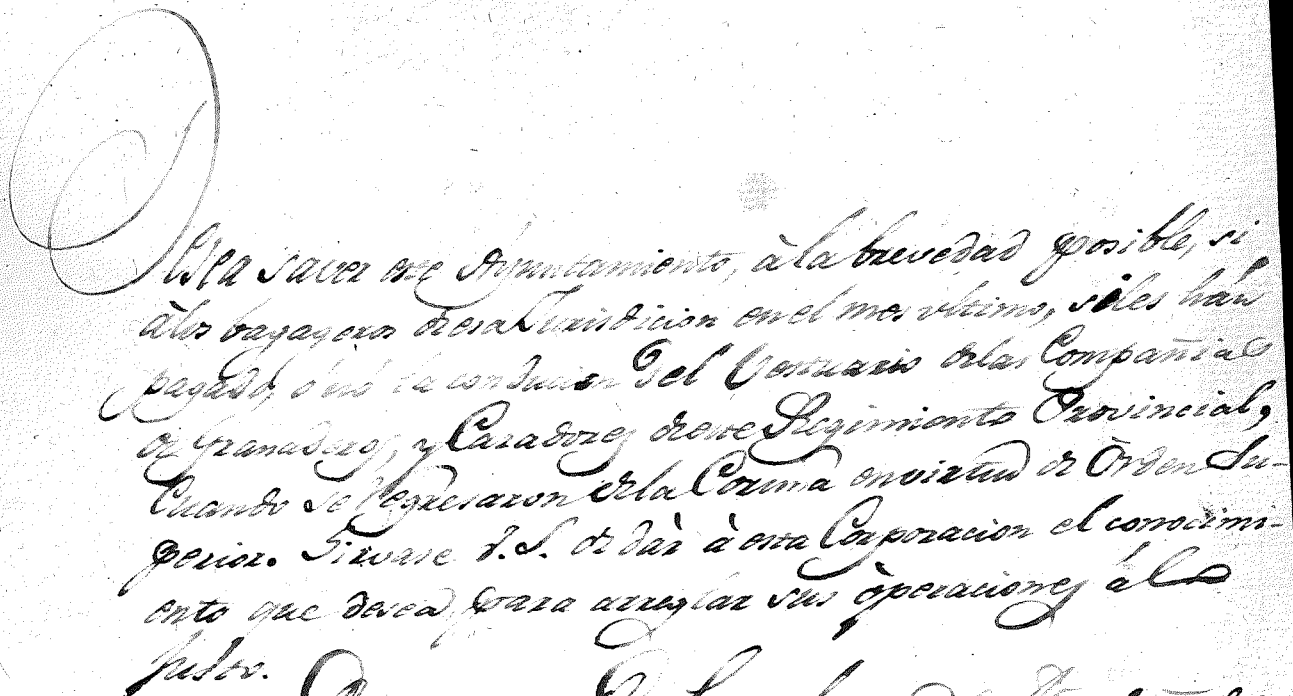 Desea saver este Ayuntamiento, à la brevedad posible, si
àlos bagageros de esa Jurisdicion en el mes ultimo, seles hán
pagado, ó nó la conducion del Vestuario delas Compañias
de Granaderos, y Cazadores de ese Regimiento Provincial,
Cuando se regresaron de la Coruña en virtud de Orden Su-
perior. Sirvase V.S. de dàr à esta Corporacion el conocimi-
ento que desea, para arreglar sus òperaciones á lo
justo.